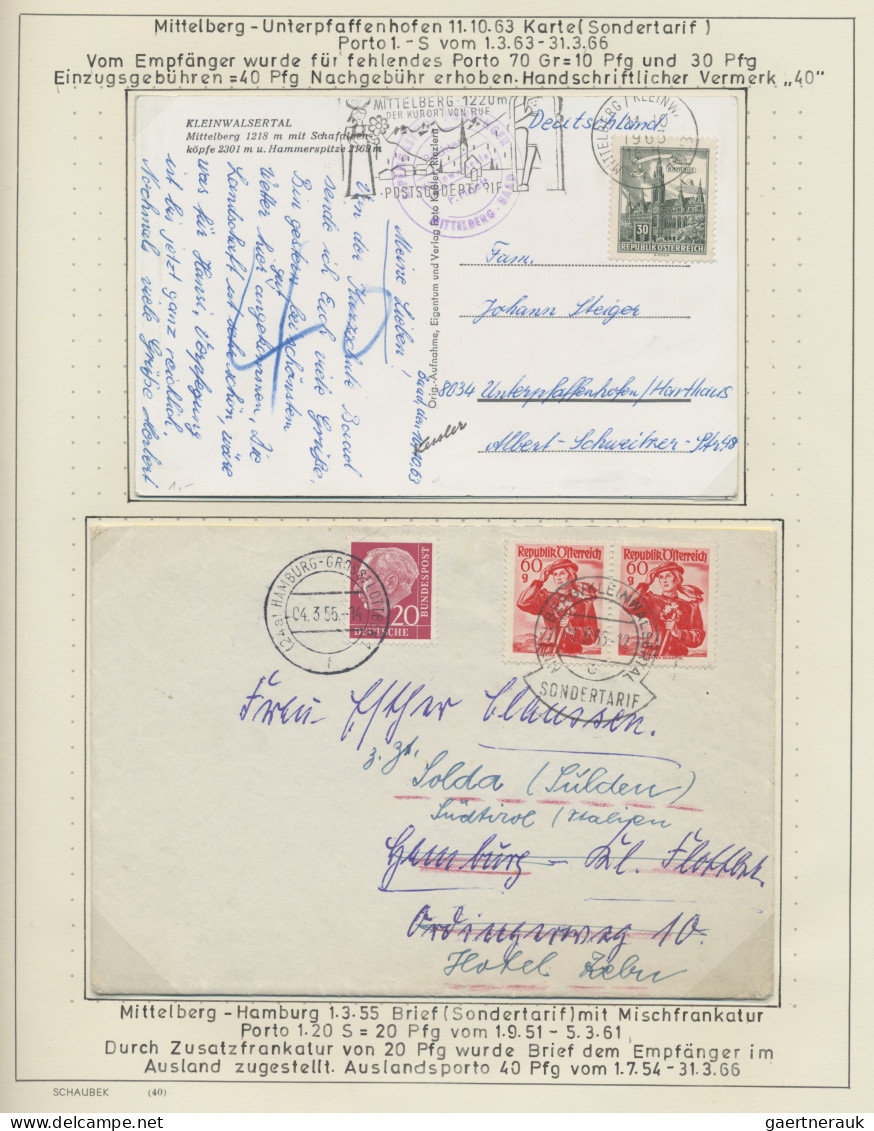 Mittelberg - Unterpfaffenhofen 11.10.63 Karte (Sondertarif)
Porto 1.-S vom 1.3.63-31.3.66
Vom Empfänger wurde für fehlendes Porto 70 Gr=10 Pfg und 30 Pfg
Einzugsgebühren =40 Pfg Nachgebühr erhoben. Handschriftlicher Vermerk „40"
KLEINWALSERTAL
Mittelberg 1218 m mit Schafalpen-
köpfe 2301 m u. Hammerspitze 2169 m
MITTELBERG 1220m
DER KURORT VON RUF
POSTSONDERTARIF
MITTELBERG-BAAD
MITTELBERG / KLEINW.
1963
Deutschland
30
REPUBLIK ÖSTERREICH
Orig.-Aufnahme, Eigentum und Verlag Foto Keßler, Riezlern
Baad, den 10.10.63
Meine Lieben!
Von der Baad
sende ich Euch viele Grüße.
Bin gestern bei schönstem
Wetter hier gut angekommen. Die
Landschaft ist sehr schön, wäre
was für Hansi, Verpflegung
ist bis jetzt ganz reichlich.
Nochmals viele Grüße Norbert
Kessler
1,-
Fam.
Johann Steiger
8034 Unterpfaffenhofen/Harthaus
Albert-Schweitzer-Str. 48
(24a) HAMBURG-GROSS FLOTTBEK
04.3.55.-14
f
20
DEUTSCHE
BUNDESPOST
Republik Österreich
60
g
Republik Österreich
60
g
MITTELBERG / KLEINWALSERTAL
SONDERTARIF
Frau Esther Claussen.
z. Zt. Solda (Sulden)
Südtirol / Italien
Hamburg - Kl. Flottbek.
Ordingerweg 10.
Hotel Zebru
Mittelberg - Hamburg 1.3.55 Brief (Sondertarif) mit Mischfrankatur
Porto 1.20 S = 20 Pfg vom 1.9.51 - 5.3.61
Durch Zusatzfrankatur von 20 Pfg wurde Brief dem Empfänger im
Ausland zugestellt. Auslandsporto 40 Pfg vom 1.7.54 -31.3.66
SCHAUBEK (40)
gaertnerauk